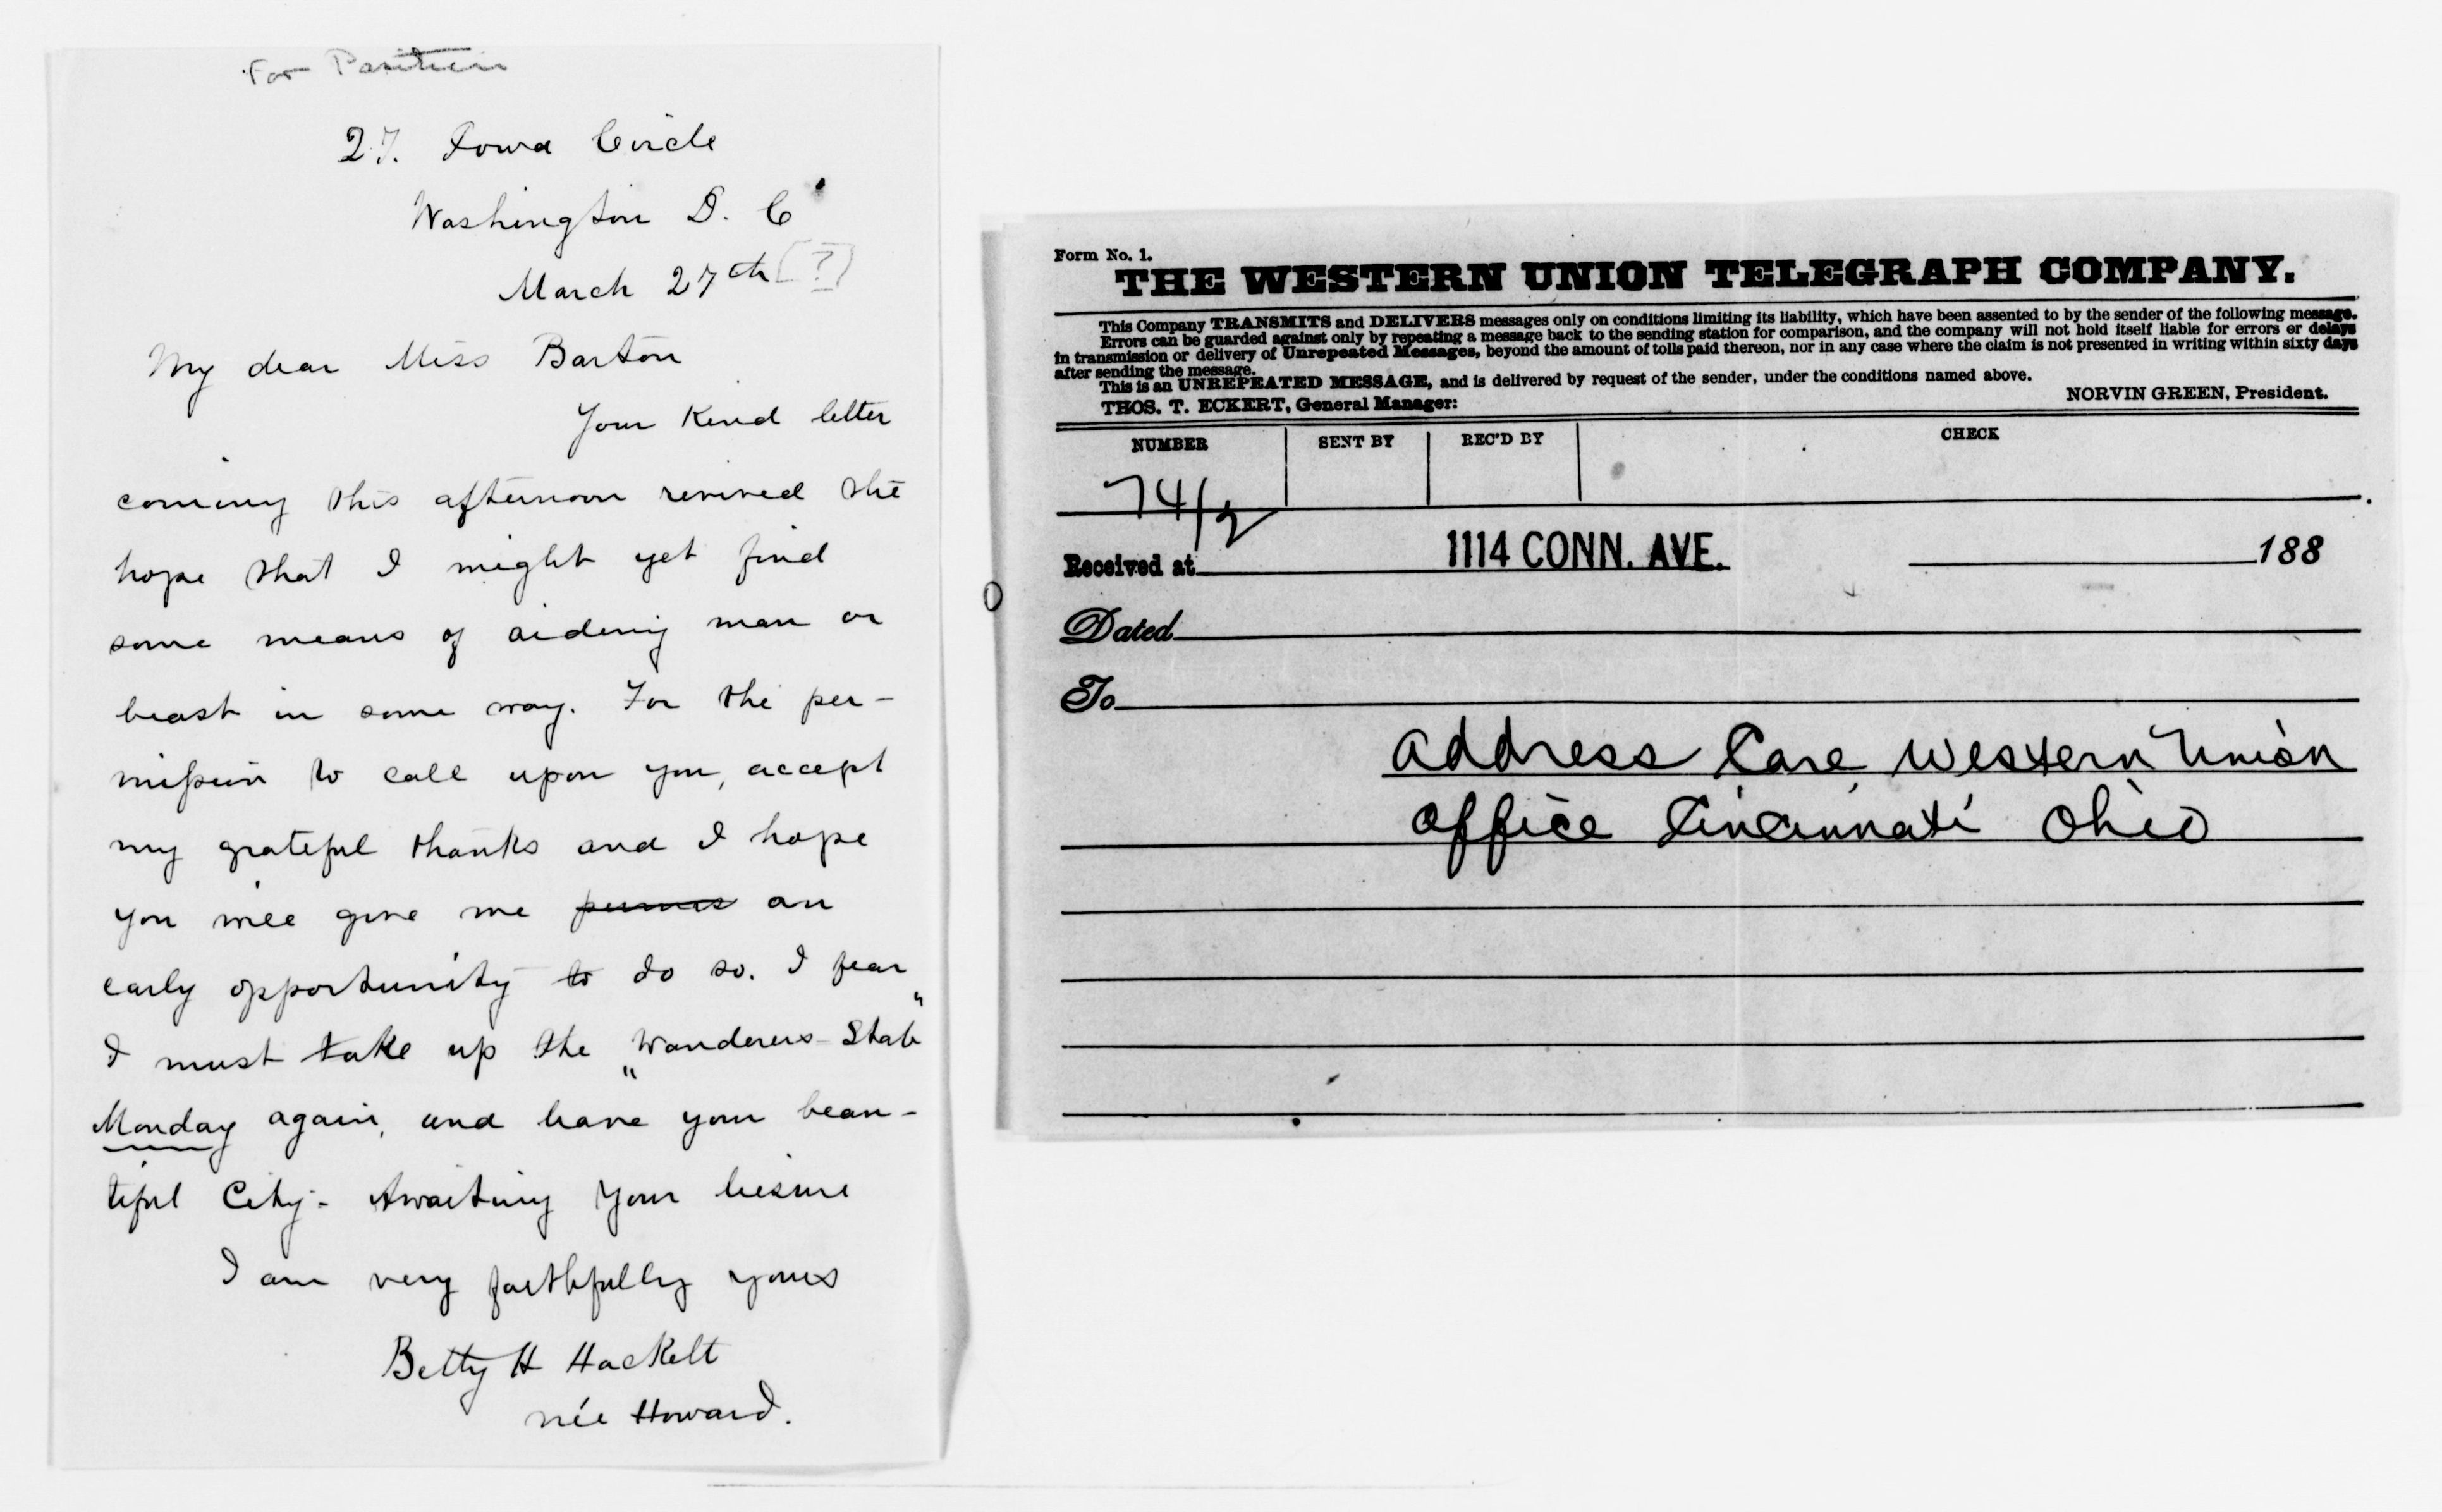 For Position
27. Iowa Circle
Washington D. C
March 27th [?]
My dear Miss Barton
Your Kind letter
coming this afternoon revived the
hope that I might yet find
some means of aiding man or
beast in some way. For the per-
mission to call upon you, accept
my grateful thanks and I hope
you will give me permis an
early opportunity to do so. I fear
I must take up the "Wanderers Stab"
Monday again, and leave your beau-
tiful City. Awaiting your liesure
I am very faithfully yours
Betty H Hackelt
née Howard.
Form No. 1.
THE WESTERN UNION TELEGRAPH COMPANY.
This Company TRANSMITS and DELIVERS messages only on conditions limiting its liability, which have been assented to by the sender of the following message.
Errors can be guarded against only by repeating a message back to the sending station for comparison, and the company will not hold itself liable for errors or delays
in transmission or delivery of Unrepeated Messages, beyond the amount of tolls paid thereon, nor in any case where the claim is not presented in writing within sixty days
after sending the message.
This is an UNREPEATED MESSAGE, and is delivered by request of the sender, under the conditions named above.
THOS. T. ECKERT, General Manager: NORVIN GREEN, President.
NUMBER SENT BY REC'D BY CHECK
74/2
Received at 1114 CONN. AVE. 188
Dated
To
address Care Western Union
office Cincinnati Ohio